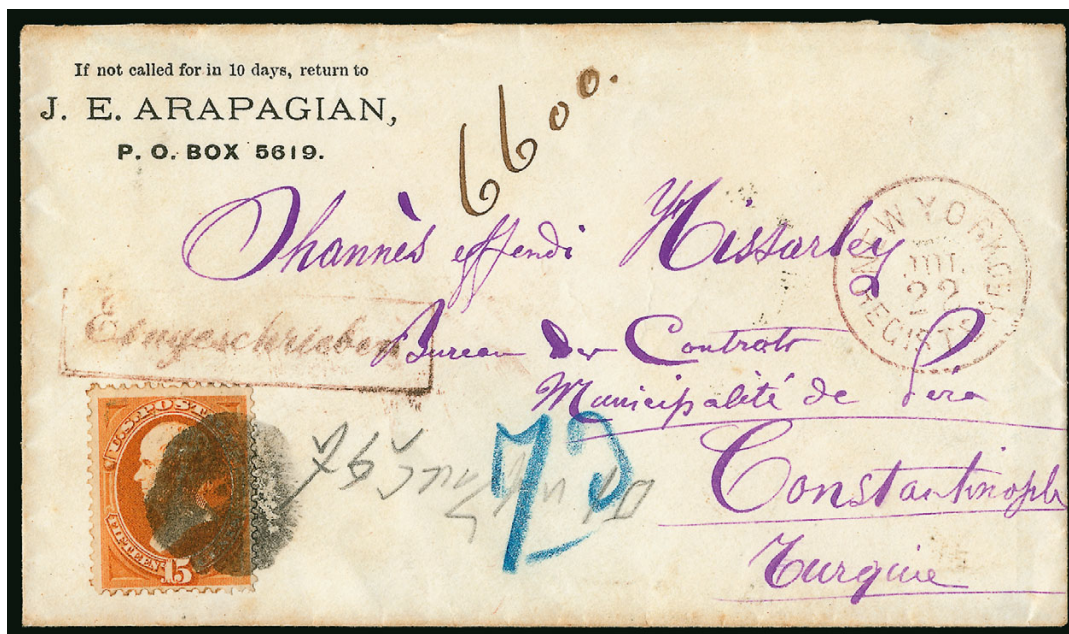 If not called for in 10 days, return to
J. E. ARAPAGIAN,
P. O. BOX 5619.
6600.
Ohannès effendi Hissarley
NEW YORK, N.Y.
JUL
22
REGIST'D
Eingeschrieben
Bureau des Contrats
Municipalité de Péra
Constantinople
Turquie
U.S. POSTAGE
FIFTEEN
15